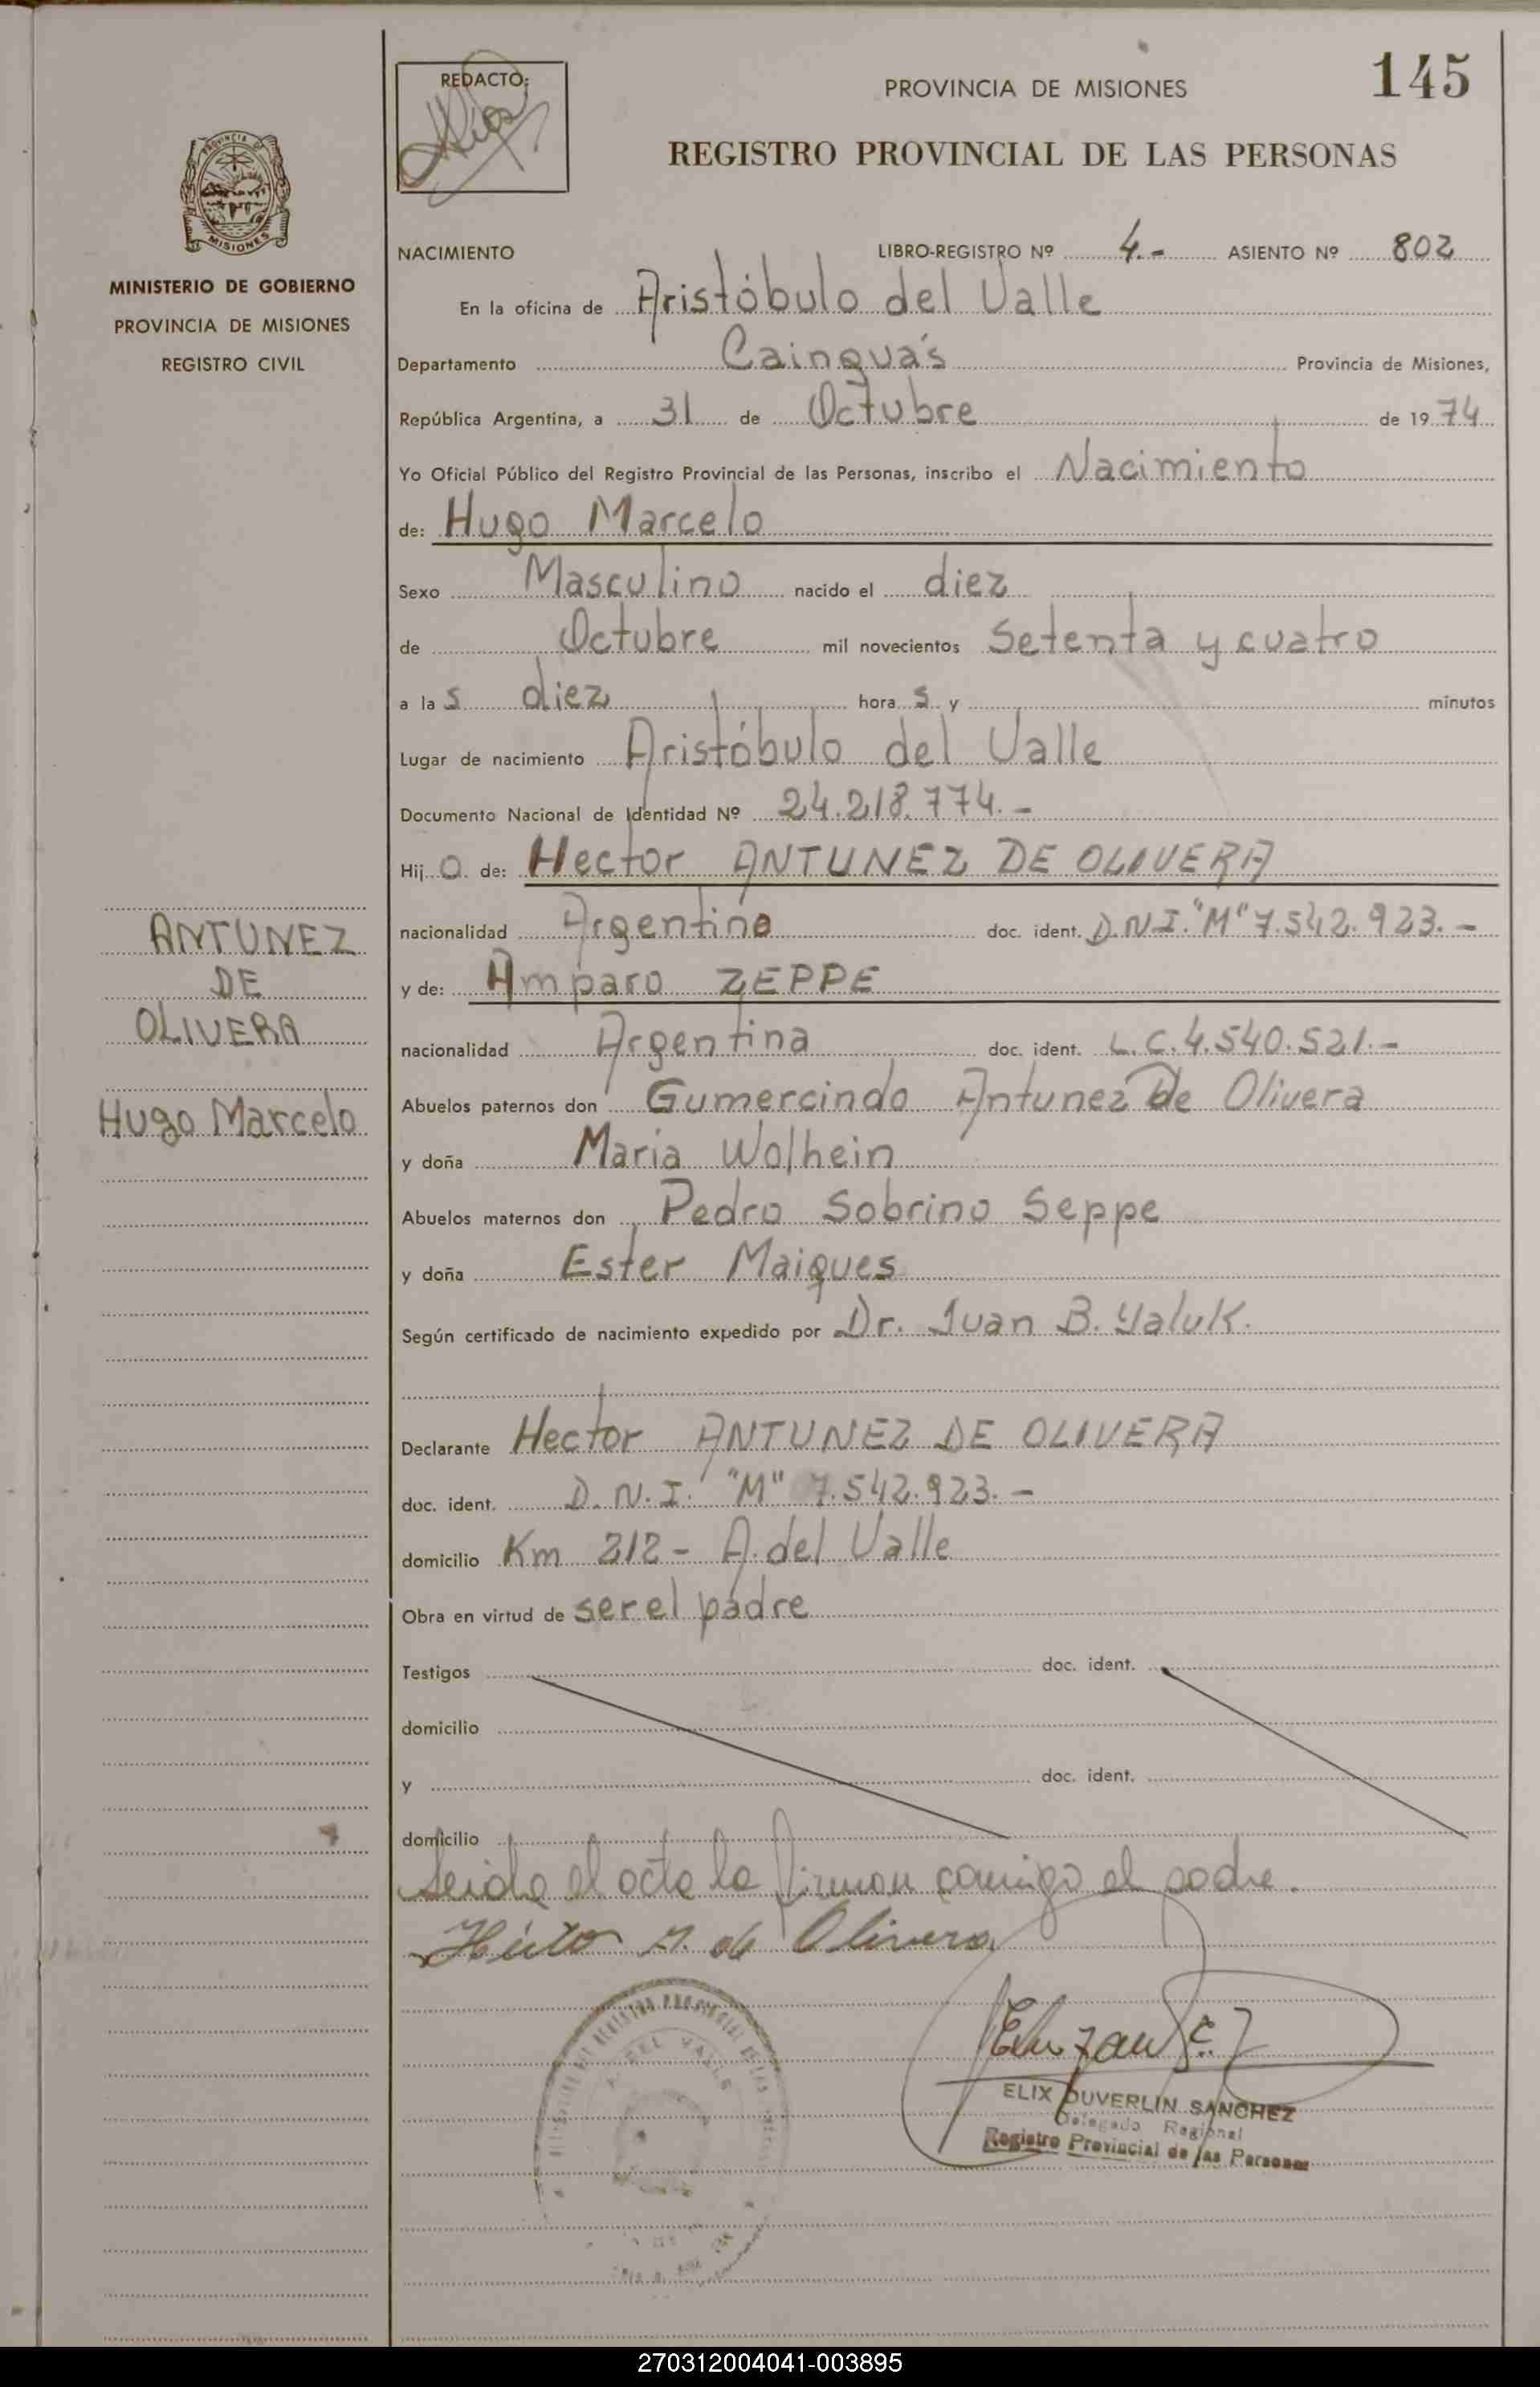 145
REDACTO:
PROVINCIA DE MISIONES
REGISTRO PROVINCIAL DE LAS PERSONAS
PROVINCIA DE
MISIONES
MINISTERIO DE GOBIERNO
PROVINCIA DE MISIONES
REGISTRO CIVIL
NACIMIENTO LIBRO-REGISTRO Nº 4.- ASIENTO Nº 802
En la oficina de Aristóbulo del Valle
Departamento Cainguás Provincia de Misiones,
República Argentina, a 31 de Octubre de 19 74
Yo Oficial Público del Registro Provincial de las Personas, inscribo el Nacimiento
de: Hugo Marcelo
Sexo Masculino nacido el diez
de Octubre mil novecientos Setenta y cuatro
a la s diez hora s y minutos
Lugar de nacimiento Aristóbulo del Valle
Documento Nacional de Identidad Nº 24.218.774.-
Hij o de: Hector ANTUNEZ DE OLIVERA
nacionalidad Argentino doc. ident. D.N.I. "M" 7.542.923.-
y de: Amparo ZEPPE
nacionalidad Argentina doc. ident. L.C. 4.540.521.-
Abuelos paternos don Gumercindo Antunez De Olivera
y doña Maria Wolhein
Abuelos maternos don Pedro Sobrino Seppe
y doña Ester Maiques
Según certificado de nacimiento expedido por Dr. Juan B. Yaluk.
Declarante Hector ANTUNEZ DE OLIVERA
doc. ident. D.N.I. "M" 7.542.923.-
domicilio Km 212 - A. del Valle
Obra en virtud de ser el padre
Testigos doc. ident.
domicilio
y doc. ident.
domicilio
Leida el acta la firman comigo el padre.
Héctor A. de Olivera
ELIX DUVERLIN SANCHEZ
Delegado Regional
Registro Provincial de las Personas
ANTUNEZ
DE
OLIVERA
Hugo Marcelo
270312004041-003895